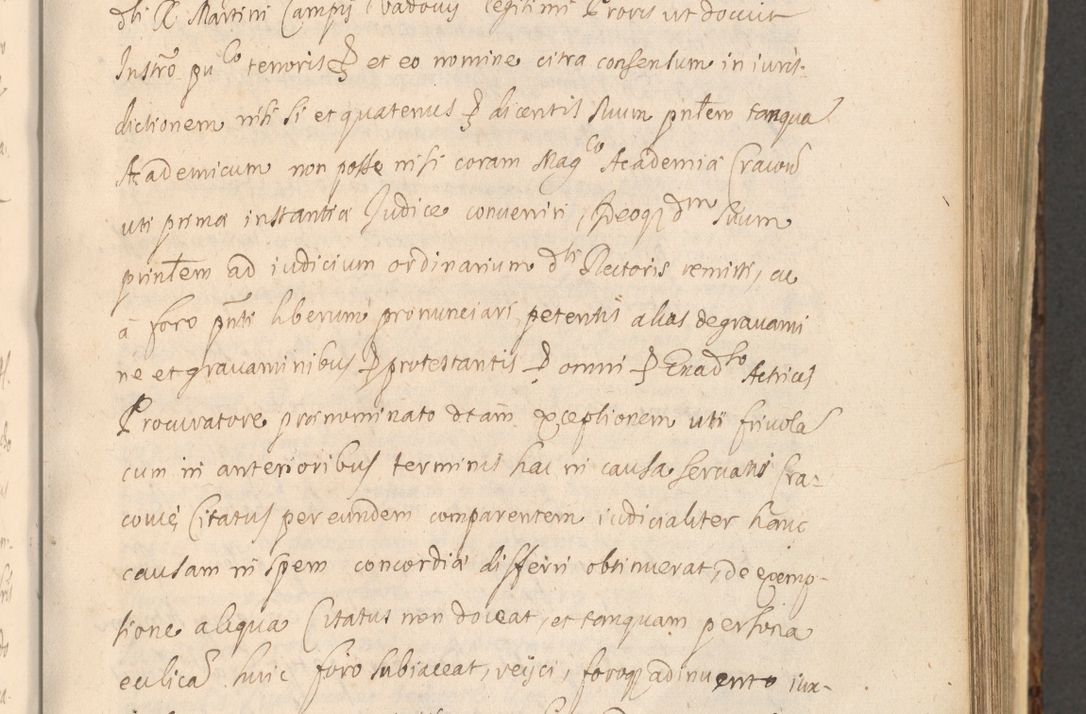 dti R Martini Campij Vadovij legitimi Provis ut docuit
Instro pu co tenoris et eo nomine citra consensum in iuris-
dictionem nisi si et quatenus dicentis suum pntem tanqua
Academicum non posse nisi coram Mag co Academia Cracovi
uti prima instantia Judice conveniri, Ideoq dm suum
printem ad iudicium ordinarium dti Rectoris remitti, ac
a foro pnti liberum pronunciari petentis alias degravami
ne et gravaminibus protestantis omni Enad to Actricis
Procuratore praenominato dtam exceptionem uti frivola
cum in anterioribus terminis hac in causa servatis Cra-
coviae Citatus per eundem comparentem iudicialiter hanc
causam in spem concordiae differri obtinuerat, de exemp-
tione aliqua Citatus non doceat, et tanquam persona
eccli​ca huic foro subiaceat, reijci, foroq adinvento iux-